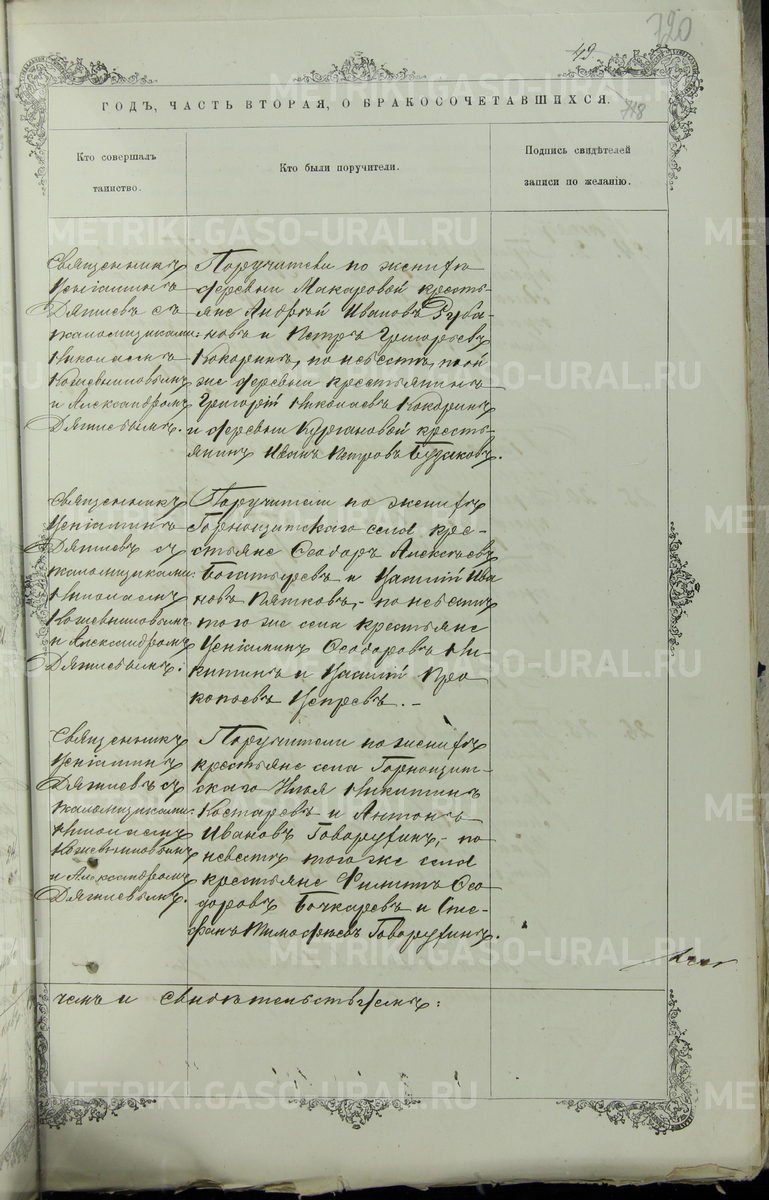 720
49
718
ГОДЪ, ЧАСТЬ ВТОРАЯ, О БРАКОСОЧЕТАВШИХСЯ.
Кто совершалъ
таинство.
Кто были поручители.
Подпись свидѣтелей
записи по желанію.
Священникъ
Веніаминъ
Дягилевъ съ
псаломщиками:
Николаемъ
Кожевниковымъ
и Александромъ
Дягилевымъ.
Поручители по женихѣ
деревни Макаровой кресть-
яне Андрей Ивановъ Руба-
новъ и Петръ Григорьевъ
Кокоринъ, по невѣстѣ, той
же деревни крестьянинъ
Григорій Николаевъ Кокоринъ
и деревни Кургановой кресть-
янинъ Иванъ Петровъ Бузаковъ.
Священникъ
Веніаминъ
Дягилевъ съ
псаломщиками:
Николаемъ
Кожевниковымъ
и Александромъ
Дягилевымъ.
Поручители по женихѣ
Горнощитскаго села кре-
стьяне Ѳеодоръ Алексѣевъ
Богатыревъ и Василій Ива
новъ Пятковъ, - по невѣстѣ
того же села крестьяне
Веніаминъ Ѳеодоровъ Ни-
китинъ и Василій Про
копьевъ Вепревъ. -
Священникъ
Веніаминъ
Дягилевъ съ
псаломщиками:
Николаемъ
Кожевниковымъ
и Александромъ
Дягилевымъ.
Поручители по женихѣ
крестьяне села Горнощит-
скаго Илья Никитинъ
Костаревъ и Антонъ
Ивановъ Говорухинъ, - по
невѣстѣ того же села
крестьяне Филиппъ Ѳео-
доровъ Бочкаревъ и Сте-
фанъ Тимофѣевъ Говорухинъ.
чемъ и свидѣтельствуемъ:
METRIKI.GASO-URAL.RU